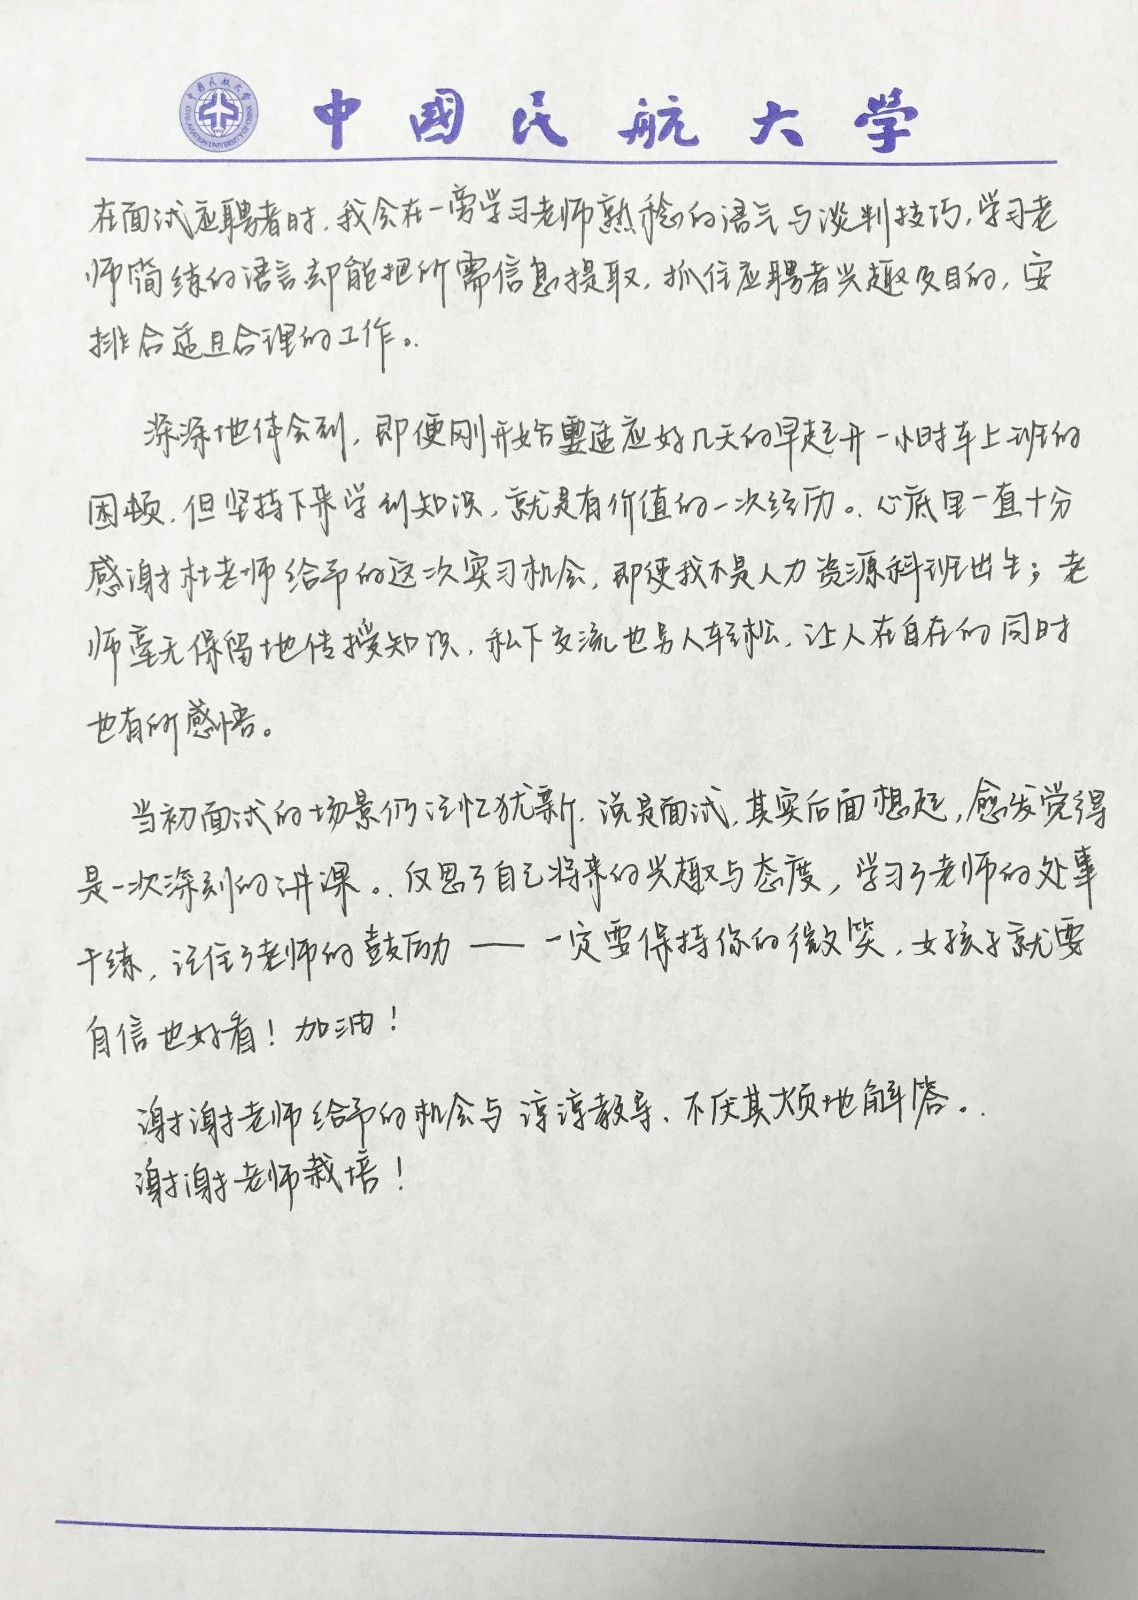 中國民航大学
在面试应聘者时，我会在一旁学习老师熟稔的语气与谈判技巧，学习老
师简练的语言却能把所需信息提取，抓住应聘者兴趣及目的，安
排合适且合理的工作。
深深地体会到，即便刚开始要适应好几天的早起开一小时车上班的
困顿，但坚持下来学到知识，就是有价值的一次经历。心底里一直十分
感谢杜老师给予的这次实习机会，即使我不是人力资源科班出生；老
师毫无保留地传授知识，私下交流也另人轻松，让人在自在的同时
也有所感悟。
当初面试的场景仍记忆犹新，说是面试，其实后面想起，愈发觉得
是一次深刻的讲课。反思了自己将来的兴趣与态度，学习了老师的处事
干练，记住了老师的鼓励——一定要保持你的微笑，女孩子就要
自信也好看！加油！
谢谢老师给予的机会与谆谆教导、不厌其烦地解答。
谢谢老师栽培！